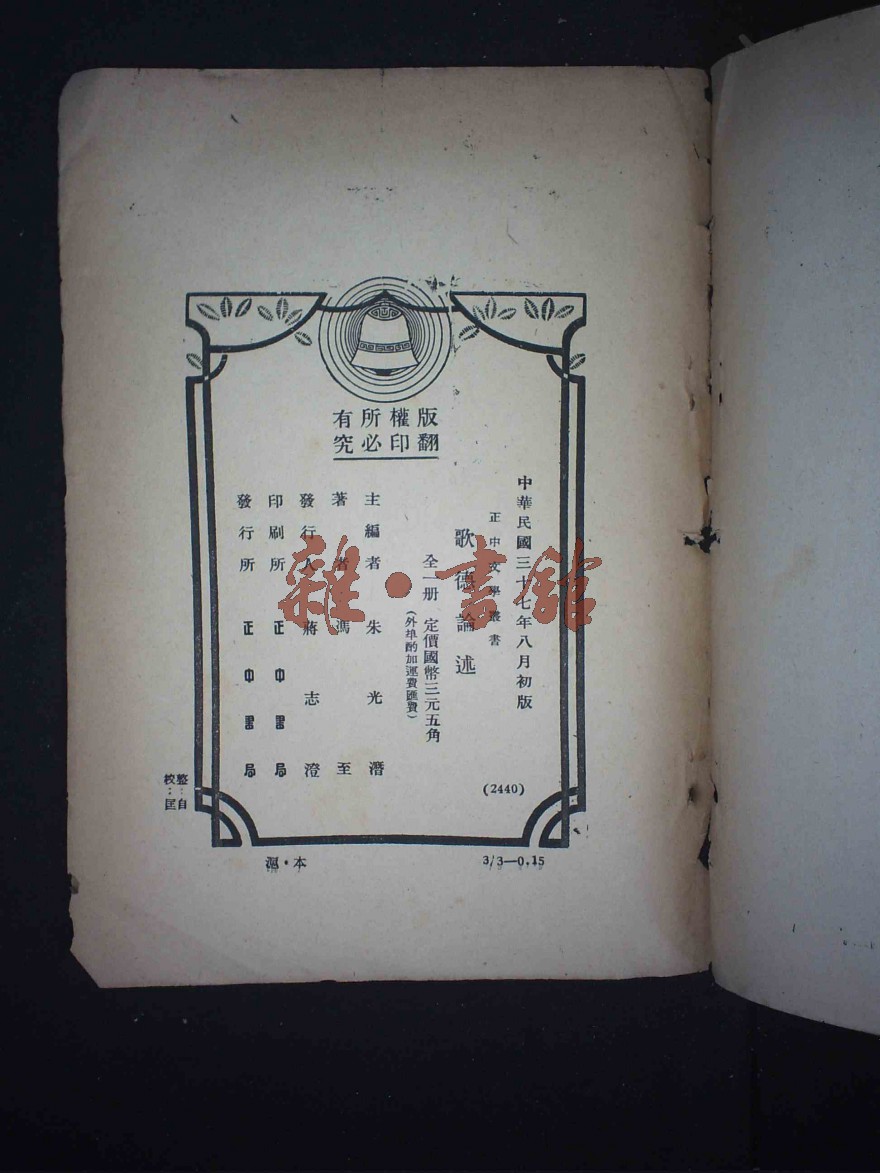 版權所有
翻印必究
中華民國三十七年八月初版
正中文學叢書
歌德論述
全一册 定價國幣三元五角
(外埠酌加運費匯費)
主編者 朱光潛
著者 馮至
發行人 蔣志澄
印刷所 正中書局
發行所 正中書局
(2440)
整：自
校：匡
滬·本
3/3—0.15
雜·書館